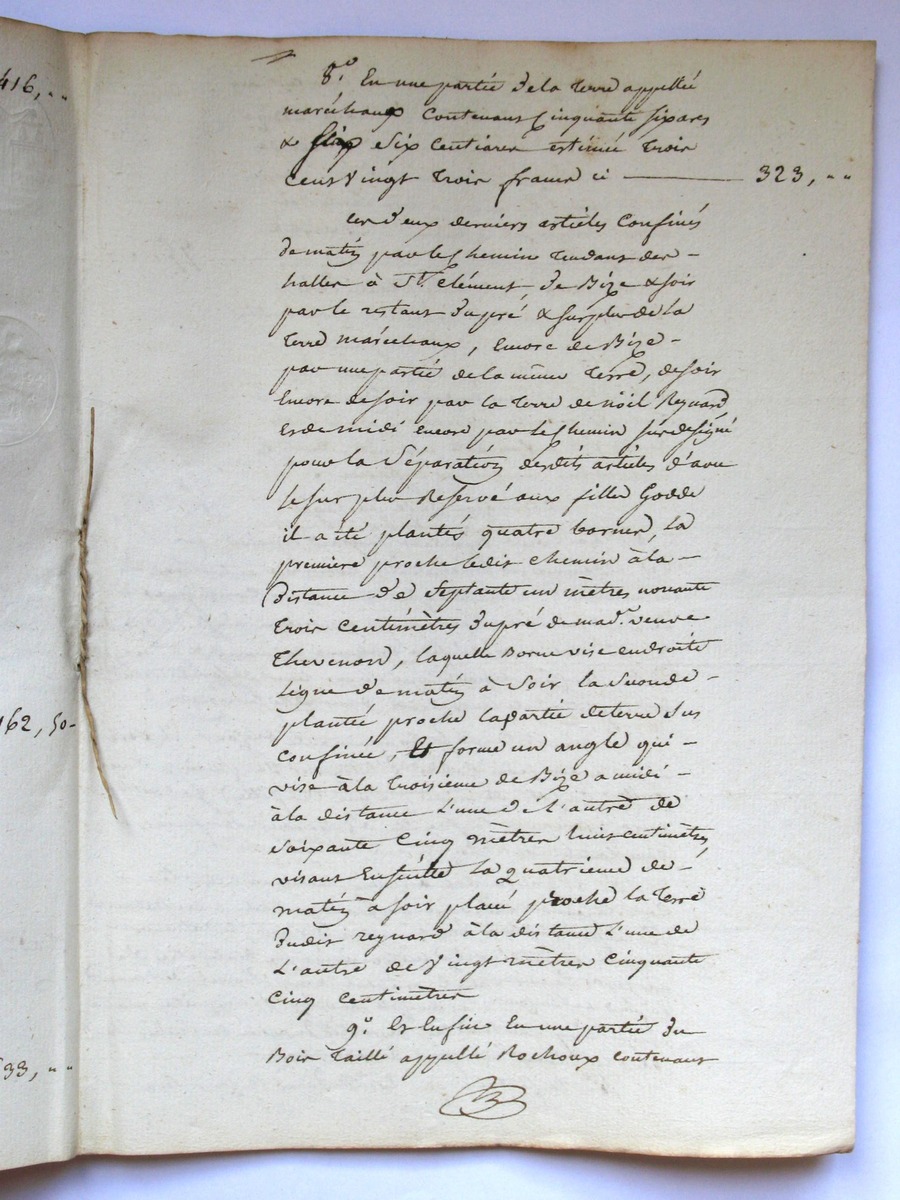 416, ..
8.° En une partie de la Terre appellée
maréchaux contenant Cinquante six ares
& six centiares estimée Trois
cent Vingt Trois francs ci — 323, ..
Ces deux derniers articles Confinés
de matin par le Chemin Tendant des -
halles à St. Clément de Bize & soir
par le restant du pré & surplus de la
Terre maréchaux, Encore de Bize -
par une partie de la même Terre, de soir
Encore de soir par la Terre de Nöil Reynard
et de midi encore par le Chemin sus désigné
pour la Séparation desdits articles d'avec
le surplus Reservé aux filles Godde
il a été plantés quatre bornes, la
premiere proche ledit chemin à la -
Distance de Septante un mètres nonante
Trois Centimètres du pré de mad.e veuve
Thevenon, laquelle Borne vise en droite
Ligne de matin à Soir la Seconde -
plantée proche la partie de terre sus
confinée, Et forme un angle qui -
vise à la Troisieme de Bize a midi -
à la distance L'une de L'autre de
Soixante Cinq mètres huit centimètres
visant Ensuitte La quatrieme de -
matin à soir placé proche la Terre
Dudit reynard à la distance L'une de
L'autre de Vingt mètres Cinquante
Cinq Centimètres
9.° Et Enfin En une partie du
Bois Taillé appellé Rochoux contenant
162, 50-
33, ..